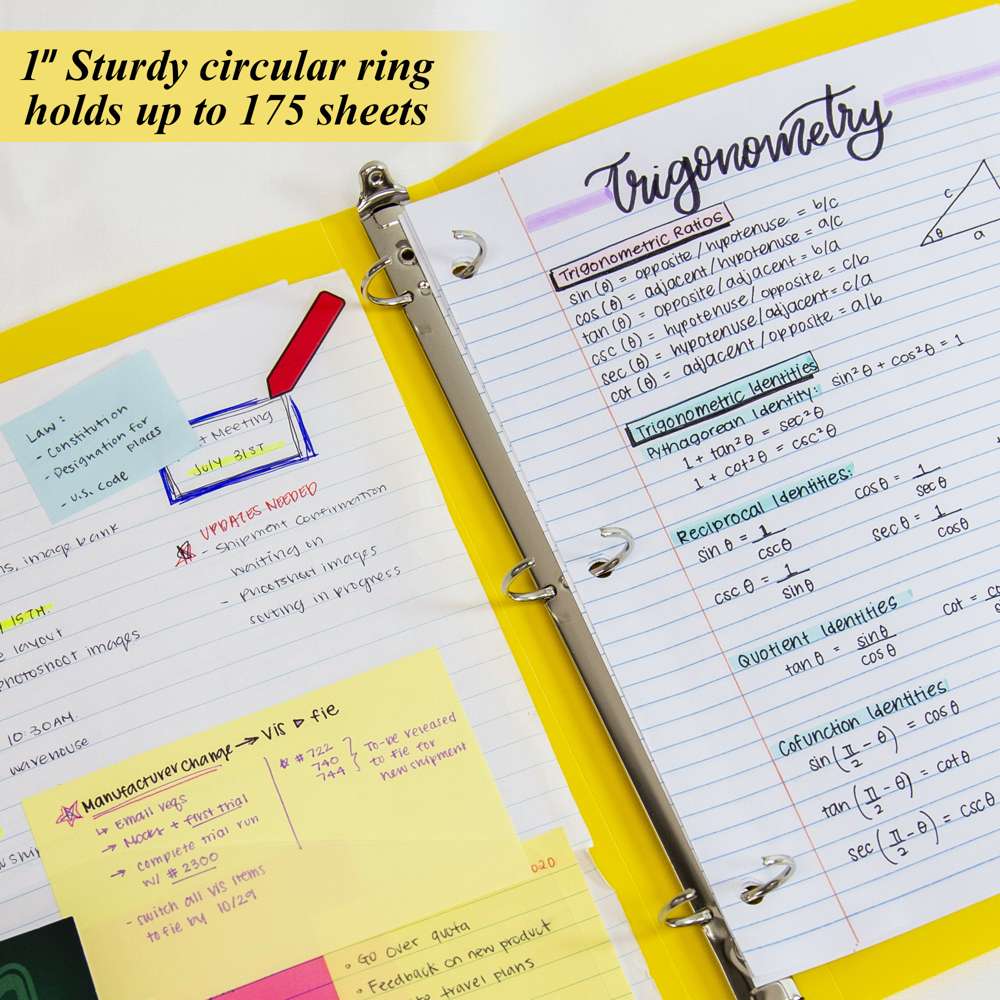 1" Sturdy circular ring
holds up to 175 sheets
Trigonometry
Trigonometric Ratios
sin (θ) = opposite/hypotenuse = b/c
cos (θ) = adjacent/hypotenuse = a/c
tan (θ) = opposite/adjacent = b/a
csc (θ) = hypotenuse/opposite = c/b
sec (θ) = hypotenuse/adjacent = c/a
cot (θ) = adjacent/opposite = a/b
c
θ
a
Trigonometric Identities
Pythagorean Identity: sin²θ + cos²θ = 1
1 + tan²θ = sec²θ
1 + cot²θ = csc²θ
Reciprocal Identities:
sin θ = 1/cscθ
cosθ = 1/secθ
csc θ = 1/sinθ
sec θ = 1/cosθ
Quotient Identities
tan θ = sinθ/cosθ
cot =
Cofunction Identities
sin(π/2 - θ) = cosθ
tan(π/2 - θ) = cotθ
sec(π/2 - θ) = cscθ
Law:
- Constitution
- Designation for
places
- U.S. Code
Meeting
July 31ST
UPDATES NEEDED
- Shipment Confirmation
waiting on
- photoshoot images
sorting in progress
image bank
15TH
layout
photoshoot images
10:30AM
warehouse
Manufacturer Change → Vis ▷ fie
↳ Email regs
→ Mocks + first trial
→ complete trial run
w/ #2300
- switch all vis items
to fie by 10/29
# 722
740
744
To-be released
to fie for
new shipment
020
• Go over quota
• Feedback on new product
travel plans